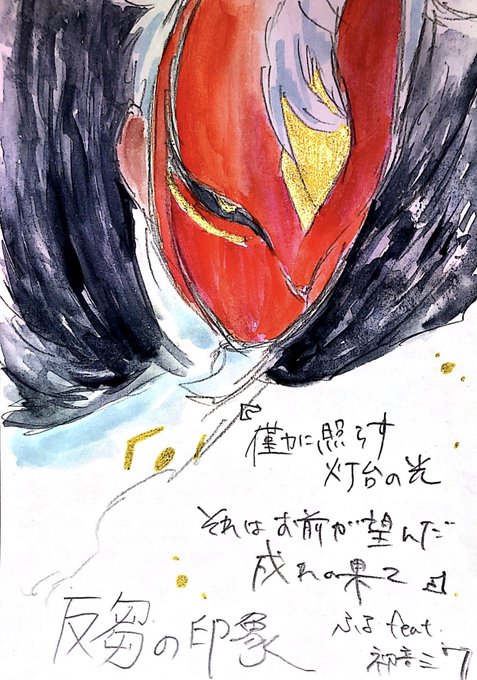 『僅かに照らす
灯台の光
それはお前が望んだ
成れの果て』
反芻の印象
ふる feat.
初音ミク